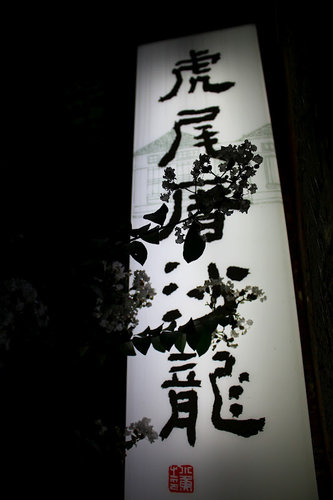 虎尾厝沙龍